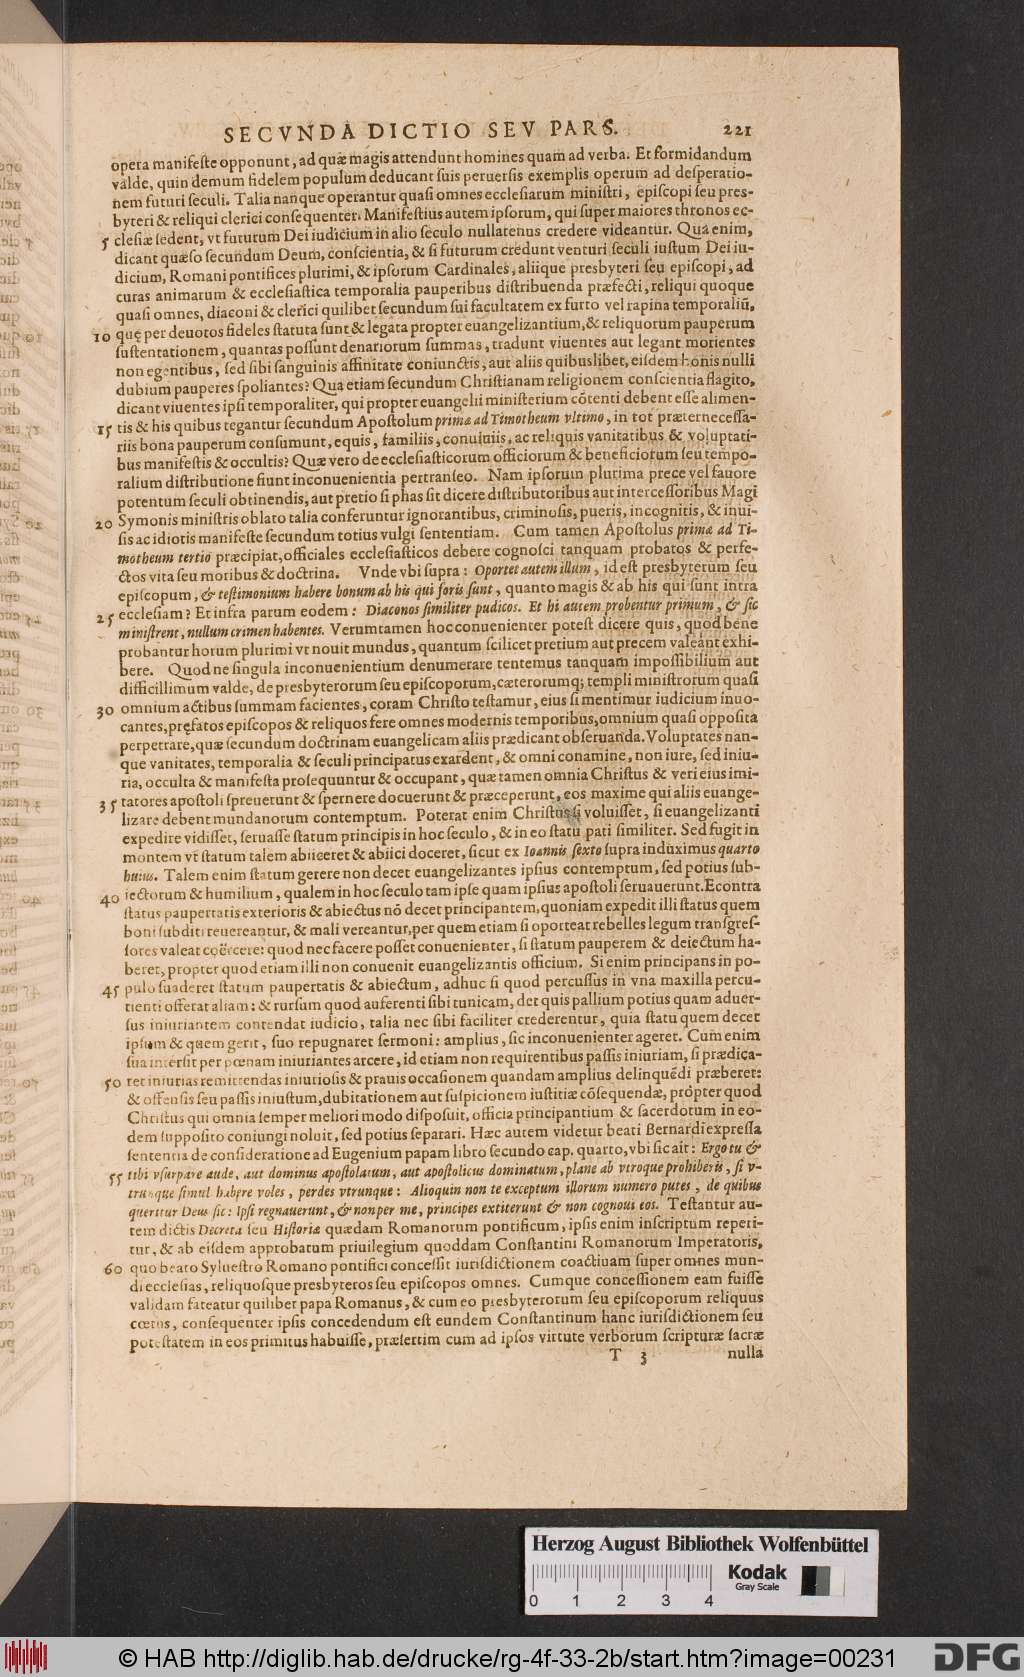 SECVNDA DICTIO SEV PARS. 221
opera manifeste opponunt, ad quæ magis attendunt homines quam ad verba. Et formidandum
valde, quin demum fidelem populum deducant suis peruersis exemplis operum ad desperatio-
nem futuri seculi. Talia nanque operantur quasi omnes ecclesiarum ministri, episcopi seu pres-
byteri & reliqui clerici consequenter. Manifestius autem ipsorum, qui super maiores thronos ec-
5 clesiæ sedent, vt futurum Dei iudicium in alio seculo nullatenus credere videantur. Qua enim,
dicant quæso secundum Deum, conscientia, & si futurum credunt venturi seculi iustum Dei iu-
dicium, Romani pontifices plurimi, & ipsorum Cardinales, aliique presbyteri seu episcopi, ad
curas animarum & ecclesiastica temporalia pauperibus distribuenda præfecti, reliqui quoque
quasi omnes, diaconi & clerici quilibet secundum sui facultatem ex furto vel rapina temporaliũ,
10 quę per deuotos fideles statuta sunt & legata propter euangelizantium, & reliquorum pauperum
sustentationem, quantas possunt denariorum summas, tradunt viuentes aut legant morientes
non egentibus, sed sibi sanguinis affinitate coniunctis, aut aliis quibuslibet, eisdem bonis nulli
dubium pauperes spoliantes? Qua etiam secundum Christianam religionem conscientia flagito,
dicant viuentes ipsi temporaliter, qui propter euangelii ministerium cõtenti debent esse alimen-
15 tis & his quibus tegantur secundum Apostolum prima ad Timotheum vltimo, in tot præternecessa-
riis bona pauperum consumunt, equis, familiis, conuiuiis, ac reliquis vanitatibus & voluptati-
bus manifestis & occultis? Quæ vero de ecclesiasticorum officiorum & beneficiorum seu tempo-
ralium distributione fiunt inconuenientia pertranseo. Nam ipsorum plurima prece vel fauore
potentum seculi obtinendis, aut pretio si phas sit dicere distributoribus aut intercessoribus Magi
20 Symonis ministris oblato talia conferuntur ignorantibus, criminosis, pueris, incognitis, & inui-
sis ac idiotis manifeste secundum totius vulgi sententiam. Cum tamen Apostolus prima ad Ti-
motheum tertio præcipiat, officiales ecclesiasticos debere cognosci tanquam probatos & perfe-
ctos vita seu moribus & doctrina. Vnde vbi supra: Oportet autem illum, id est presbyterum seu
episcopum, & testimonium habere bonum ab his qui foris sunt, quanto magis & ab his qui sunt intra
25 ecclesiam? Et infra parum eodem: Diaconos similiter pudicos. Et hi autem probentur primum, & sic
ministrent, nullum crimen habentes. Verumtamen hoc conuenienter potest dicere quis, quod bene
probantur horum plurimi vt nouit mundus, quantum scilicet pretium aut precem valeant exhi-
bere. Quod ne singula inconuenientium denumerare tentemus tanquam impossibilium aut
difficillimum valde, de presbyterorum seu episcoporum, cæterorumq; templi ministrorum quasi
30 omnium actibus summam facientes, coram Christo testamur, eius si mentimur iudicium inuo-
cantes, pręfatos episcopos & reliquos fere omnes modernis temporibus, omnium quasi opposita
perpetrare, quæ secundum doctrinam euangelicam aliis prædicant obseruanda. Voluptates nan-
que vanitates, temporalia & seculi principatus exardent, & omni conamine, non iure, sed iniu-
ria, occulta & manifesta prosequuntur & occupant, quæ tamen omnia Christus & veri eius imi-
35 tatores apostoli spreuerunt & spernere docuerunt & præceperunt, eos maxime qui aliis euange-
lizare debent mundanorum contemptum. Poterat enim Christus si voluisset, si euangelizanti
expedire vidisset, seruasse statum principis in hoc seculo, & in eo statu pati similiter. Sed fugit in
montem vt statum talem abiiceret & abiici doceret, sicut ex Ioannis sexto supra induximus quarto
huius. Talem enim statum gerere non decet euangelizantes ipsius contemptum, sed potius sub-
40 iectorum & humilium, qualem in hoc seculo tam ipse quam ipsius apostoli seruauerunt. Econtra
status paupertatis exterioris & abiectus nõ decet principantem, quoniam expedit illi status quem
boni subditi reuereantur, & mali vereantur, per quem etiam si oporteat rebelles legum transgres-
sores valeat coërcere: quod nec facere posset conuenienter, si statum pauperem & deiectum ha-
beret, propter quod etiam illi non conuenit euangelizantis officium. Si enim principans in po-
45 pulo suaderet statum paupertatis & abiectum, adhuc si quod percussus in vna maxilla percu-
tienti offerat aliam: & rursum quod auferenti sibi tunicam, det quis pallium potius quam aduer-
sus iniuriantem contendat iudicio, talia nec sibi faciliter crederentur, quia statu quem decet
ipsum & quem gerit, suo repugnaret sermoni: amplius, sic inconuenienter ageret. Cum enim
sua intersit per pœnam iniuriantes arcere, id etiam non requirentibus passis iniuriam, si prædica-
50 ret iniurias remittendas iniuriosis & prauis occasionem quandam amplius delinquẽdi præberet:
& offensis seu passis iniustum, dubitationem aut suspicionem iustitiæ cõsequendæ, propter quod
Christus qui omnia semper meliori modo disposuit, officia principantium & sacerdotum in eo-
dem supposito coniungi noluit, sed potius separari. Hæc autem videtur beati Bernardi expressa
sententia de consideratione ad Eugenium papam libro secundo cap. quarto, vbi sic ait: Ergo tu &
55 tibi vsurpare aude, aut dominus apostolatum, aut apostolicus dominatum, plane ab vtroque prohiberis, si v-
trunque simul habere voles, perdes vtrunque: Alioquin non te exceptum illorum numero putes, de quibus
queritur Deus sic: Ipsi regnauerunt, & non per me, principes extiterunt & non cognoui eos. Testantur au-
tem dictis Decreta seu Historiæ quædam Romanorum pontificum, ipsis enim inscriptum reperi-
tur, & ab eisdem approbatum priuilegium quoddam Constantini Romanorum Imperatoris,
60 quo beato Syluestro Romano pontifici concessit iurisdictionem coactiuam super omnes mun-
di ecclesias, reliquosque presbyteros seu episcopos omnes. Cumque concessionem eam fuisse
validam fateatur quilibet papa Romanus, & cum eo presbyterorum seu episcoporum reliquus
cœtus, consequenter ipsis concedendum est eundem Constantinum hanc iurisdictionem seu
potestatem in eos primitus habuisse, præsertim cum ad ipsos virtute verborum scripturæ sacræ
T 3 nulla
Herzog August Bibliothek Wolfenbüttel
Kodak
Gray Scale
0 1 2 3 4
© HAB http://diglib.hab.de/drucke/rg-4f-33-2b/start.htm?image=00231
DFG